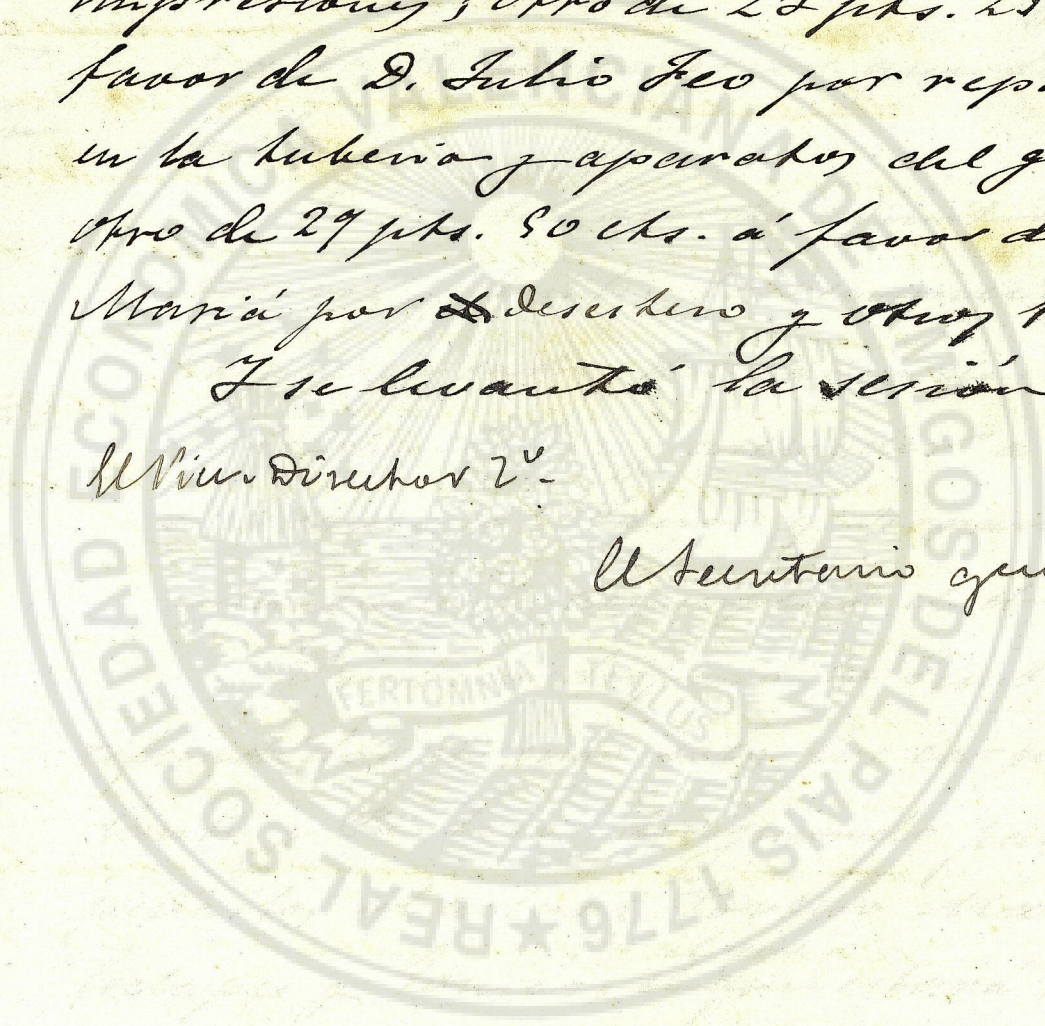 impresiones; otro de 27 pts. 25
favor de D. Julio Feo por repa
en la tuberia y aparatos del g
otro de 27 pts. 50 cts. á favor d
Mariá por desestero y otros t
Y se levantó la sesión
El Vice-Director 2º.
El Secretario gen
REAL SOCIEDAD ECONOMICA VALENCIANA DE AMIGOS DEL PAIS 1776 ★
FERT OMNIA TELLUS